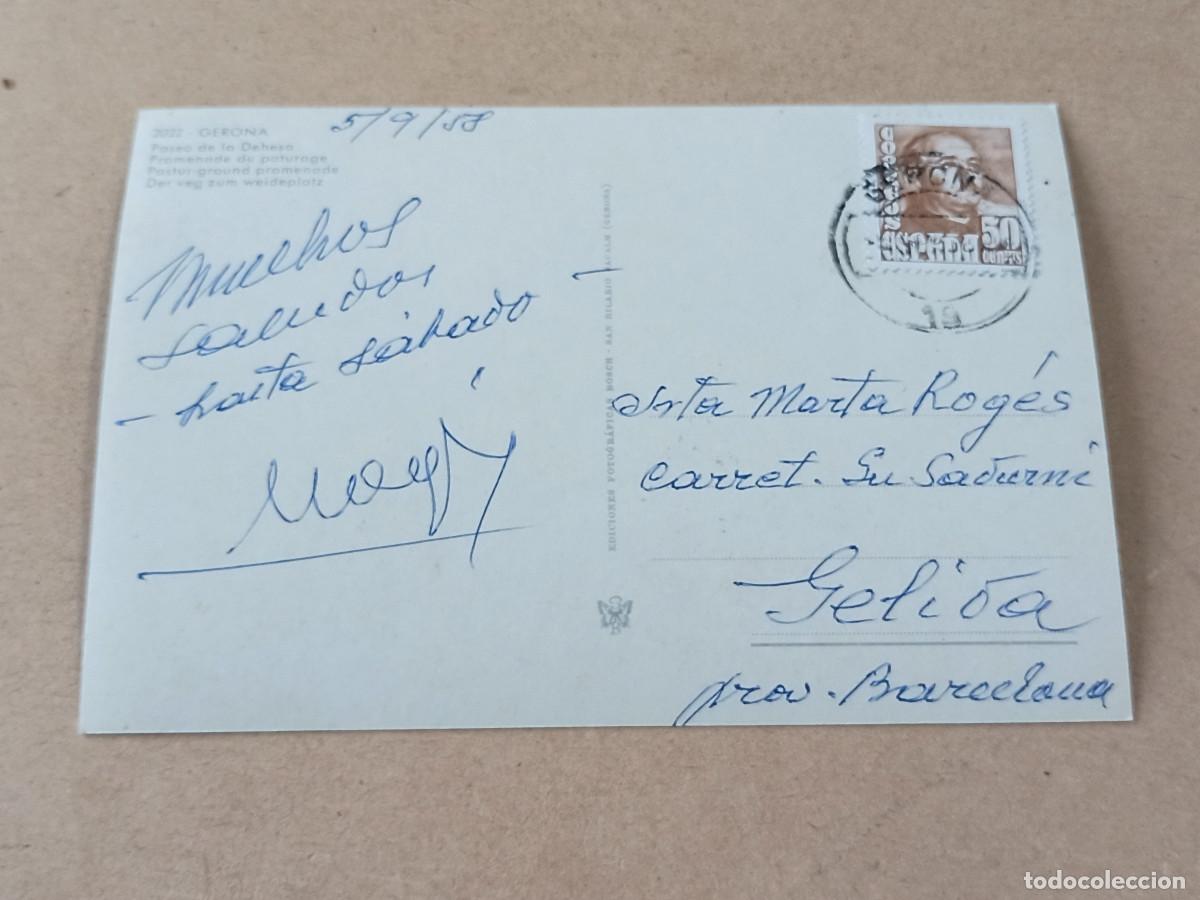 5/9/58
2022 - GERONA
Paseo de la Dehesa
Promenade du paturage
Pastur-ground promenade
Der veg zum weideplatz
Muchos
saludos
- hasta sábado -
EDICIONES FOTOGRÁFICAS BOSCH - SAN HILARIO SACALM (GERONA)
CORREOS
ESPAÑA
50
CENTS
19
Srta Marta Rogés
Carret. Sn Sadurni
Gelida
prov. Barcelona
todocoleccion